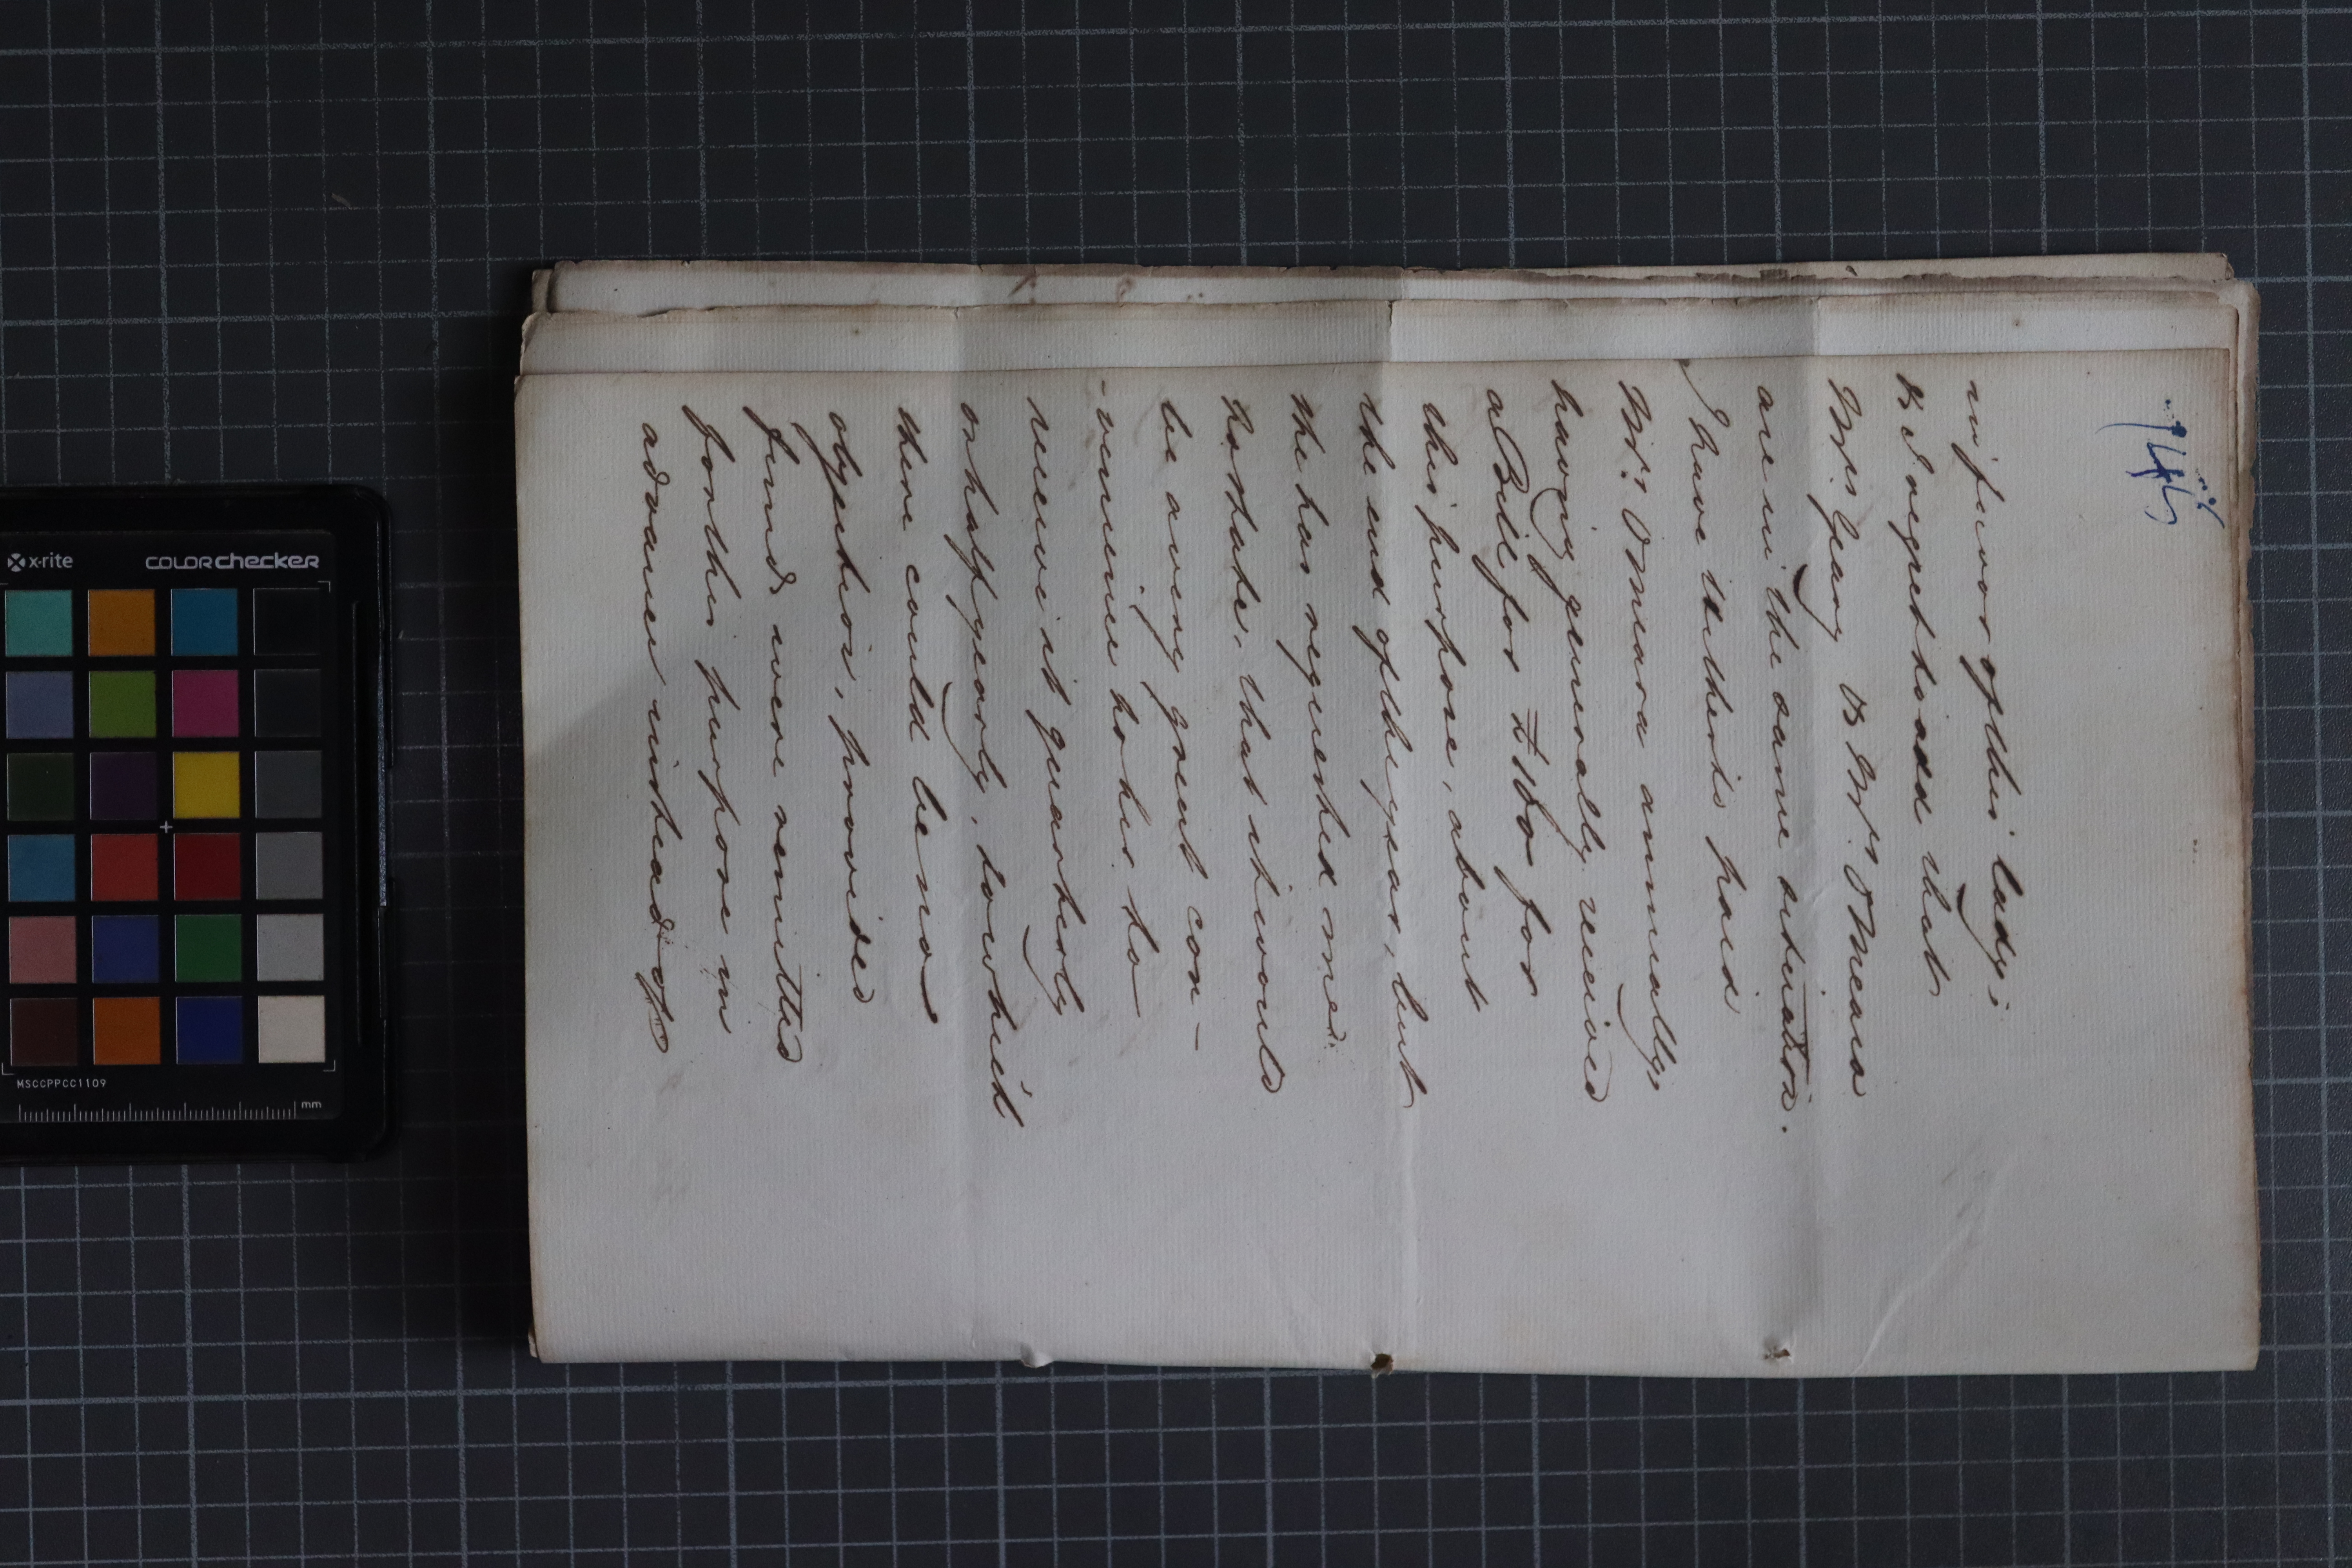 745
in favor of this lady;
& I regret to add that
Mrs. Geary & Mrs. OMeara
are in the same situation.
I have hitherto paid
Mrs. OMeara annually,
having generally received
a Bill for £ 100 for
this purpose, about
the end of the year, but
she has requested me
to state, that it would
be a very great con-
-venience to her to
receive it quarterly
or half yearly, to which
there could be no
objection, provided
funds were remitted
for this purpose in
advance instead of
x-rite
COLORchecker
MSCCPPCC1109
mm